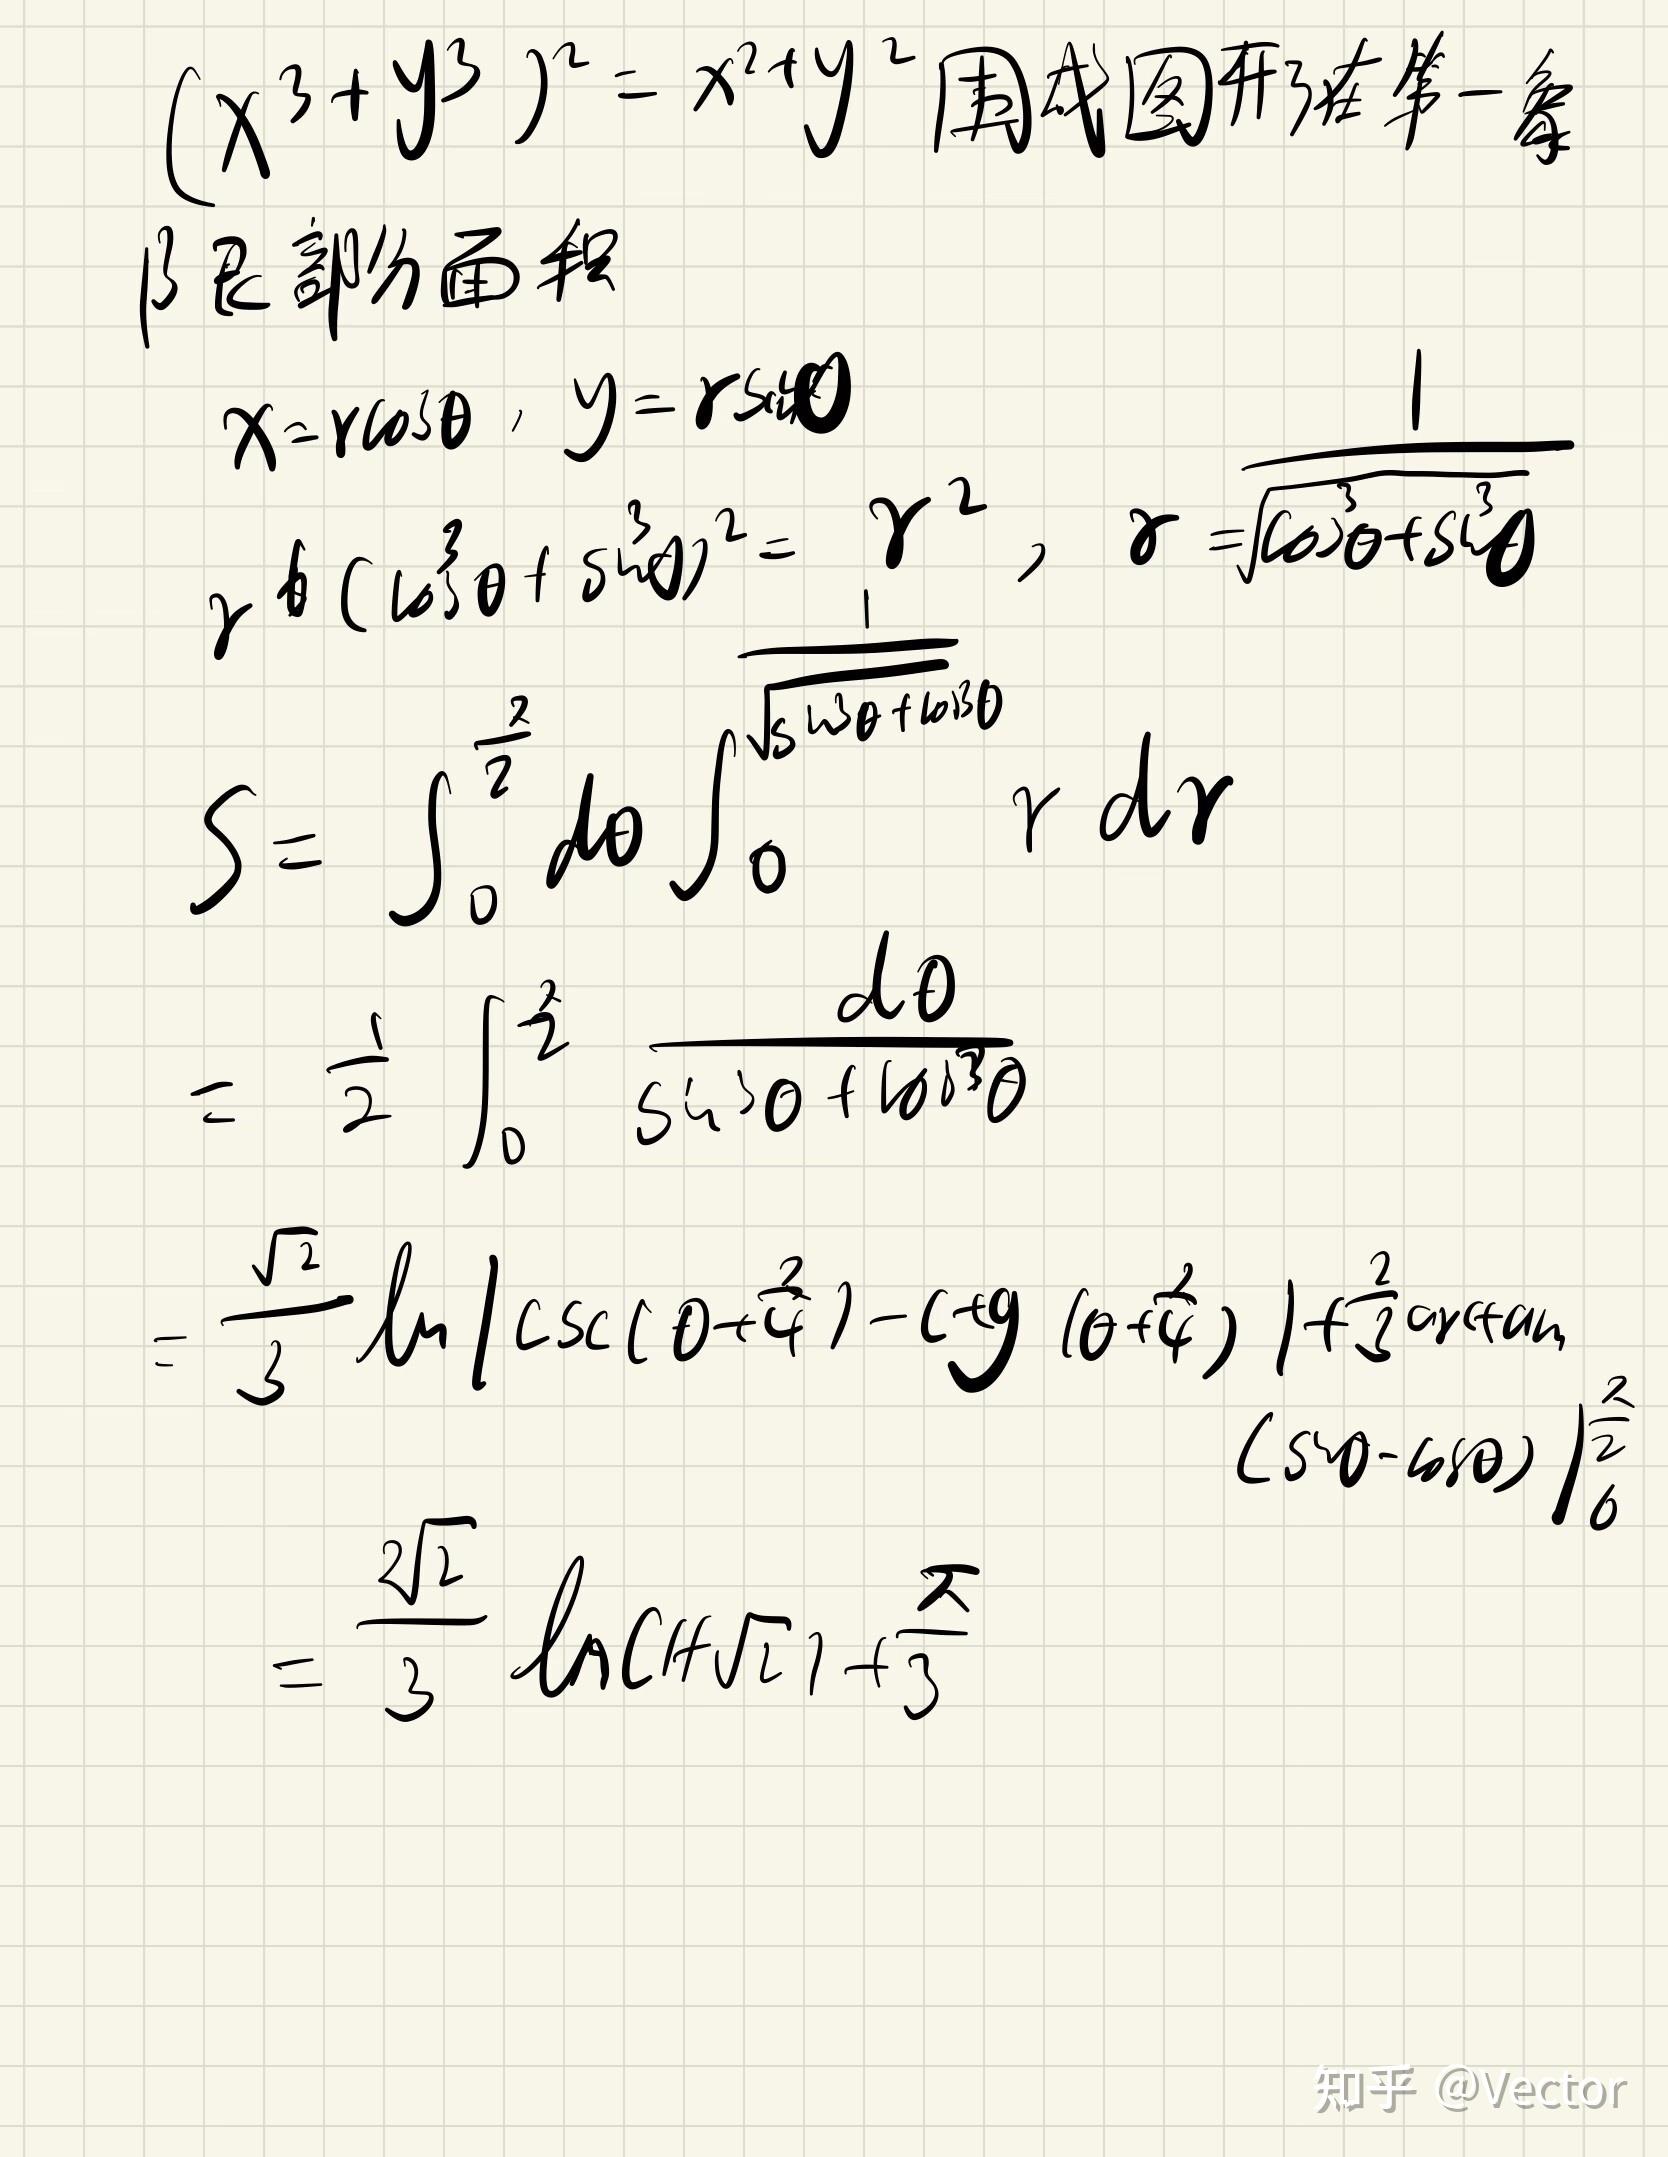 (x³+y³)²=x²+y² 围成图形在第一象
限部分面积
x=rcosθ, y=rsinθ
r⁶(cos³θ+sin³θ)²=r², r=1/√(cos³θ+sin³θ)
S=∫₀^(π/2) dθ ∫₀^(1/√(sin³θ+cos³θ)) r dr
=1/2 ∫₀^(π/2) dθ/(sin³θ+cos³θ)
=√2/3 ln|csc(θ+π/4)-ctg(θ+π/4)|+2/3 arctan
(sinθ-cosθ)|₀^(π/2)
=2√2/3 ln(1+√2)+π/3
知乎 @Vector